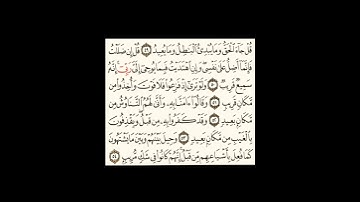 قُلْ جَآءَ ٱلْحَقُّ وَمَا يُبْدِئُ ٱلْبَٰطِلُ وَمَا يُعِيدُ ٤٩ قُلْ إِن ضَلَلْتُ
فَإِنَّمَآ أَضِلُّ عَلَىٰ نَفْسِى وَإِنِ ٱهْتَدَيْتُ فَبِمَا يُوحِىٓ إِلَىَّ رَبِّىٓ إِنَّهُۥ
سَمِيعٌ قَرِيبٌ ٥٠ وَلَوْ تَرَىٰٓ إِذْ فَزِعُوا۟ فَلَا فَوْتَ وَأُخِذُوا۟ مِن
مَّكَانٍ قَرِيبٍ ٥١ وَقَالُوٓا۟ ءَامَنَّا بِهِۦ وَأَنَّىٰ لَهُمُ ٱلتَّنَاوُشُ مِن
مَّكَانٍۭ بَعِيدٍ ٥٢ وَقَدْ كَفَرُوا۟ بِهِۦ مِن قَبْلُ وَيَقْذِفُونَ
بِٱلْغَيْبِ مِن مَّكَانٍۭ بَعِيدٍ ٥٣ وَحِيلَ بَيْنَهُمْ وَبَيْنَ مَا يَشْتَهُونَ
كَمَا فُعِلَ بِأَشْيَاعِهِم مِّن قَبْلُ إِنَّهُمْ كَانُوا۟ فِى شَكٍّ مُّرِيبٍۭ ٥٤